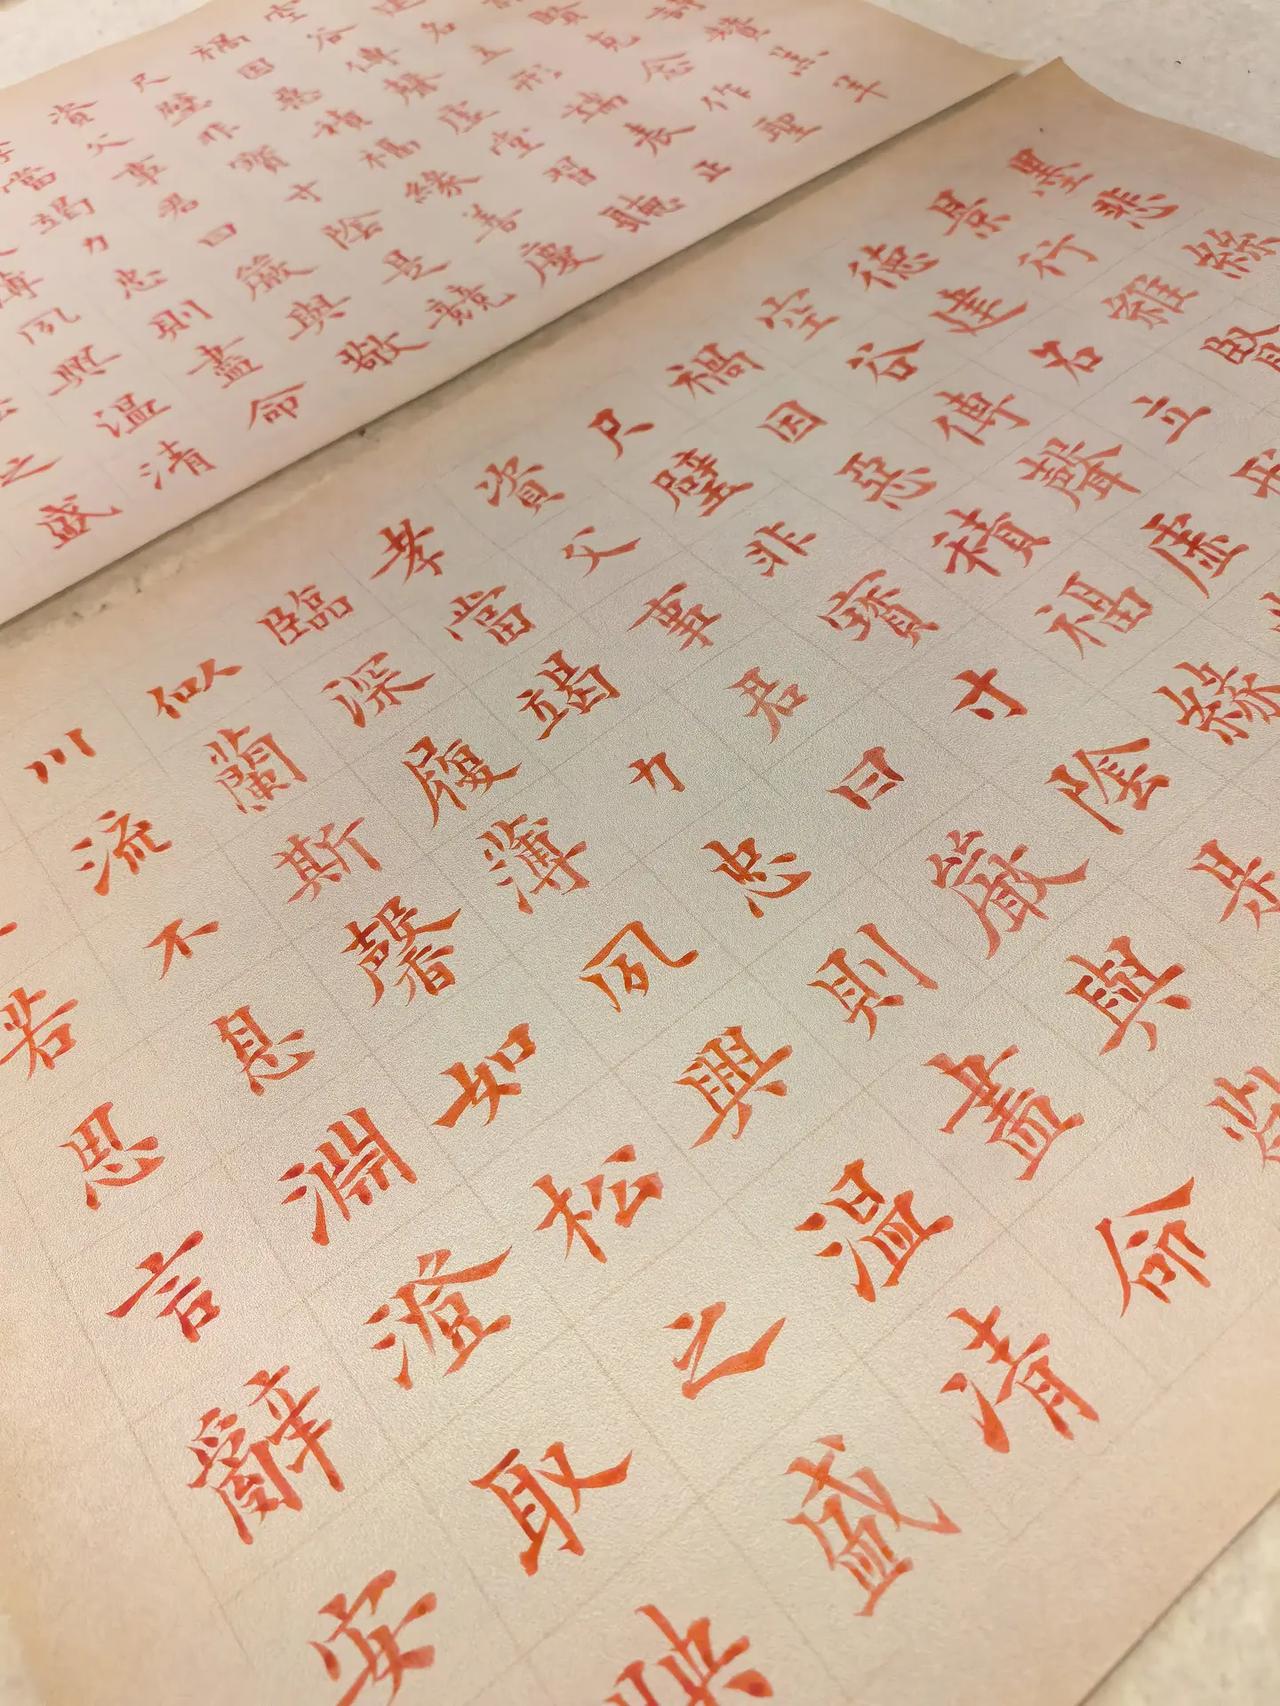 詩讚羔羊
賢克念作聖
建名立形端表正
空谷傳聲虛堂習聽
禍因惡積福緣善慶
尺璧非寶寸陰是競
資父事君曰嚴與敬
當竭力忠則盡命
薄夙興溫清
之盛
墨悲絲
景行維賢
德建名立形
空谷傳聲虛
禍因惡積福緣
尺璧非寶寸陰是
資父事君曰嚴與敬
孝當竭力忠則盡命
臨深履薄夙興溫清
似蘭斯馨如松之盛
川流不息淵澄取映
若思言辭安